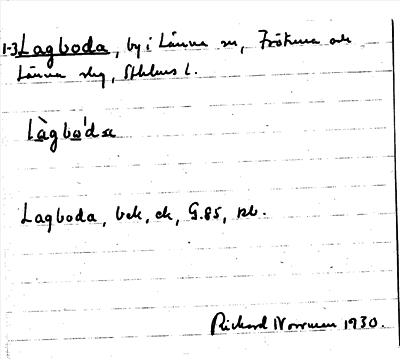 1-3 Lagboda, by i Länna sn, Frötuna och
Länna skg, Sthlms l.
Làgbo'da
Lagboda, bek, ek, G.85, kb.
Richard Norrman 1930.